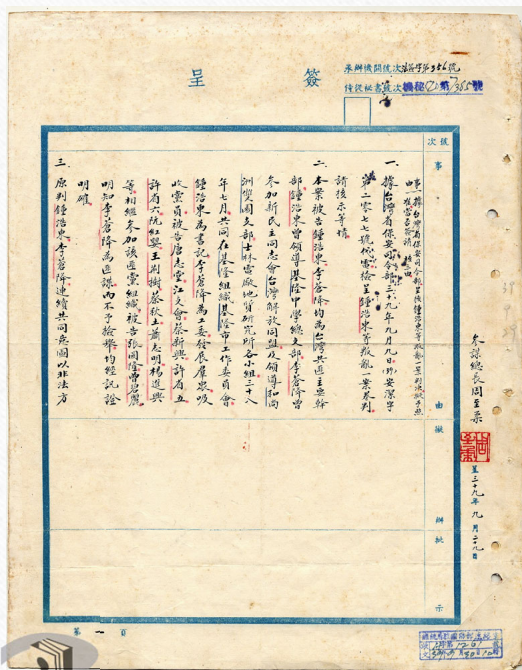 簽呈
承辦機關號次 第356號
侍從秘書號次 機秘(乙)第 號
參謀總長周至柔
呈三十九年九月二十八日
號次
事由擬辦批示
事由 據台灣省保安司令部呈核鍾浩東等叛亂一案判決擬予照
准當否簽請 核示由
一、據台灣省保安司令部三十九年九月九日安潔字
第二零七七號代電檢呈鍾浩東等叛亂一案卷判
請核示等情
二、本案被告鍾浩東李蒼降均為台灣共匪主要幹
部鍾浩東曾領導基隆中學總支部李蒼降曾
參加新民主同志會台灣解放同盟及領導和尚
洲燮國支部士林電廠地質研究所各小組三十八
年七月共同在基隆組織基隆市工作委員會
鍾浩東為書記李蒼降為工委發展羣眾吸
收黨員被告唐志堂江文會蔡新興許省五
許省六阮紅嬰王荊樹蔡秋土蕭志明楊進興
等相繼參加該匪黨組織被告張國隆曾
明知李蒼降為匪諜而不予檢舉均經訊證
明確
三、原判鍾浩東李蒼降連續共同意圖以非法方
第一頁